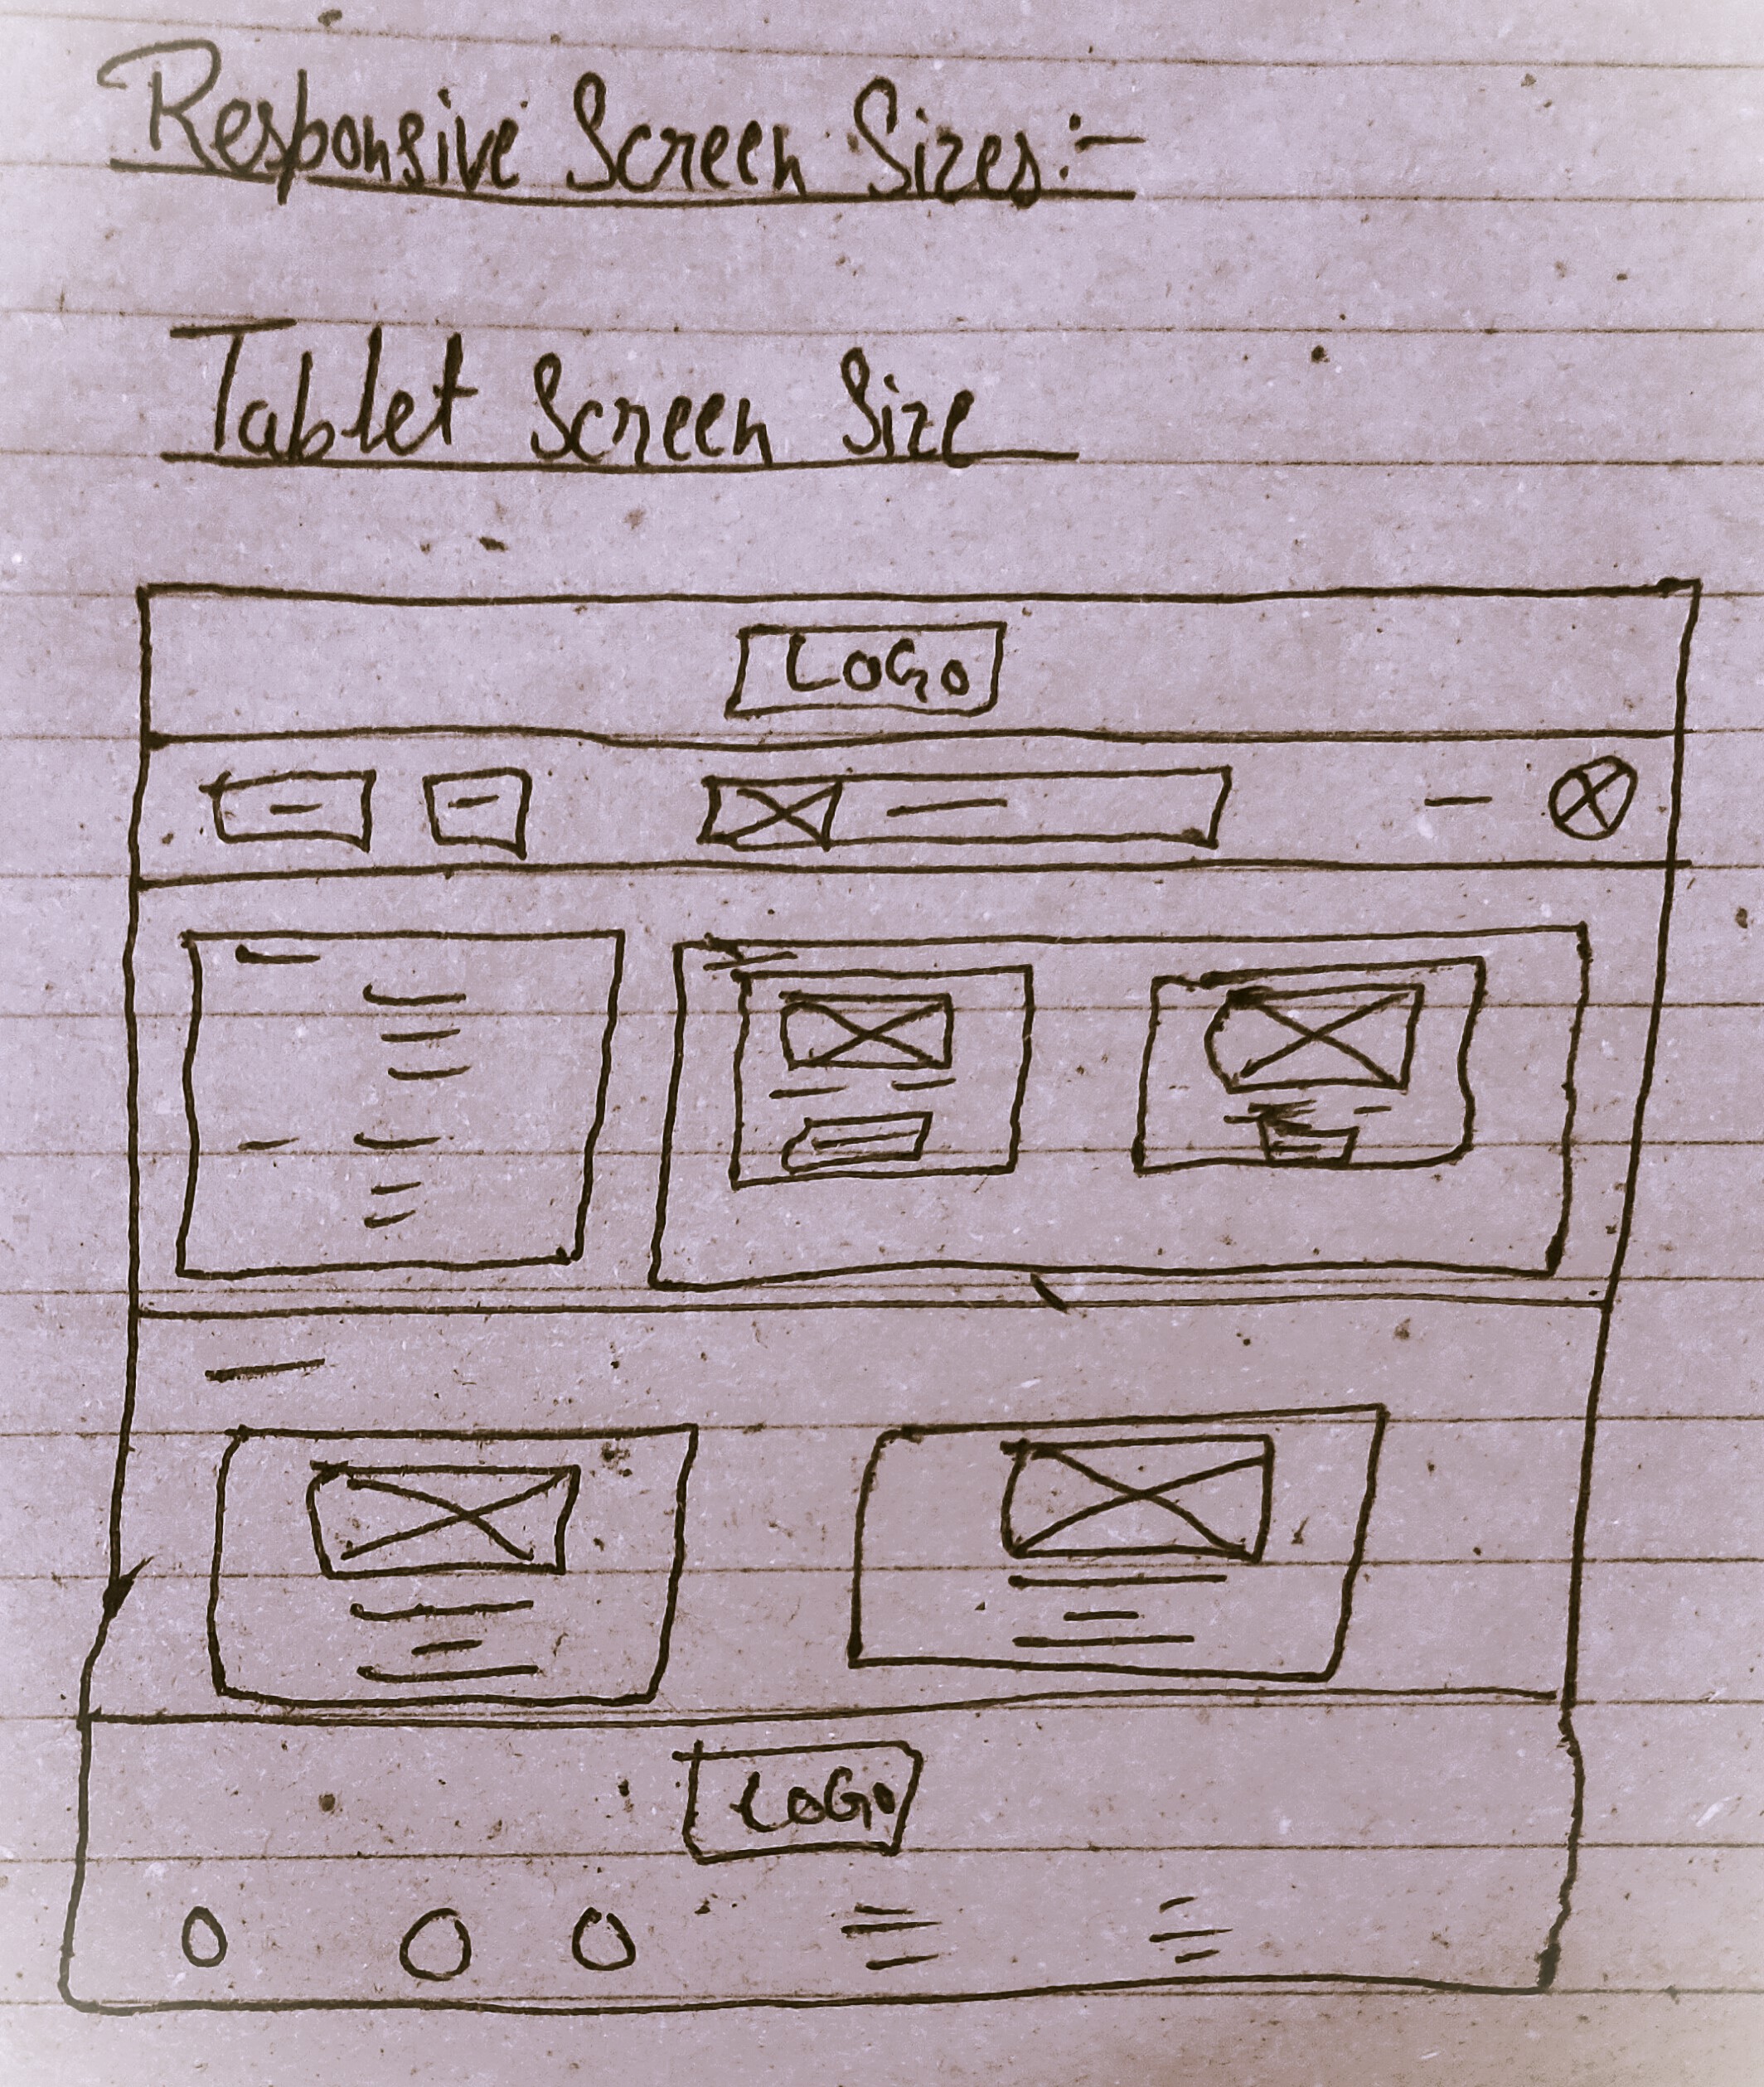 Responsive Screen Sizes:-
Tablet Screen Size
LOGO
LOGO